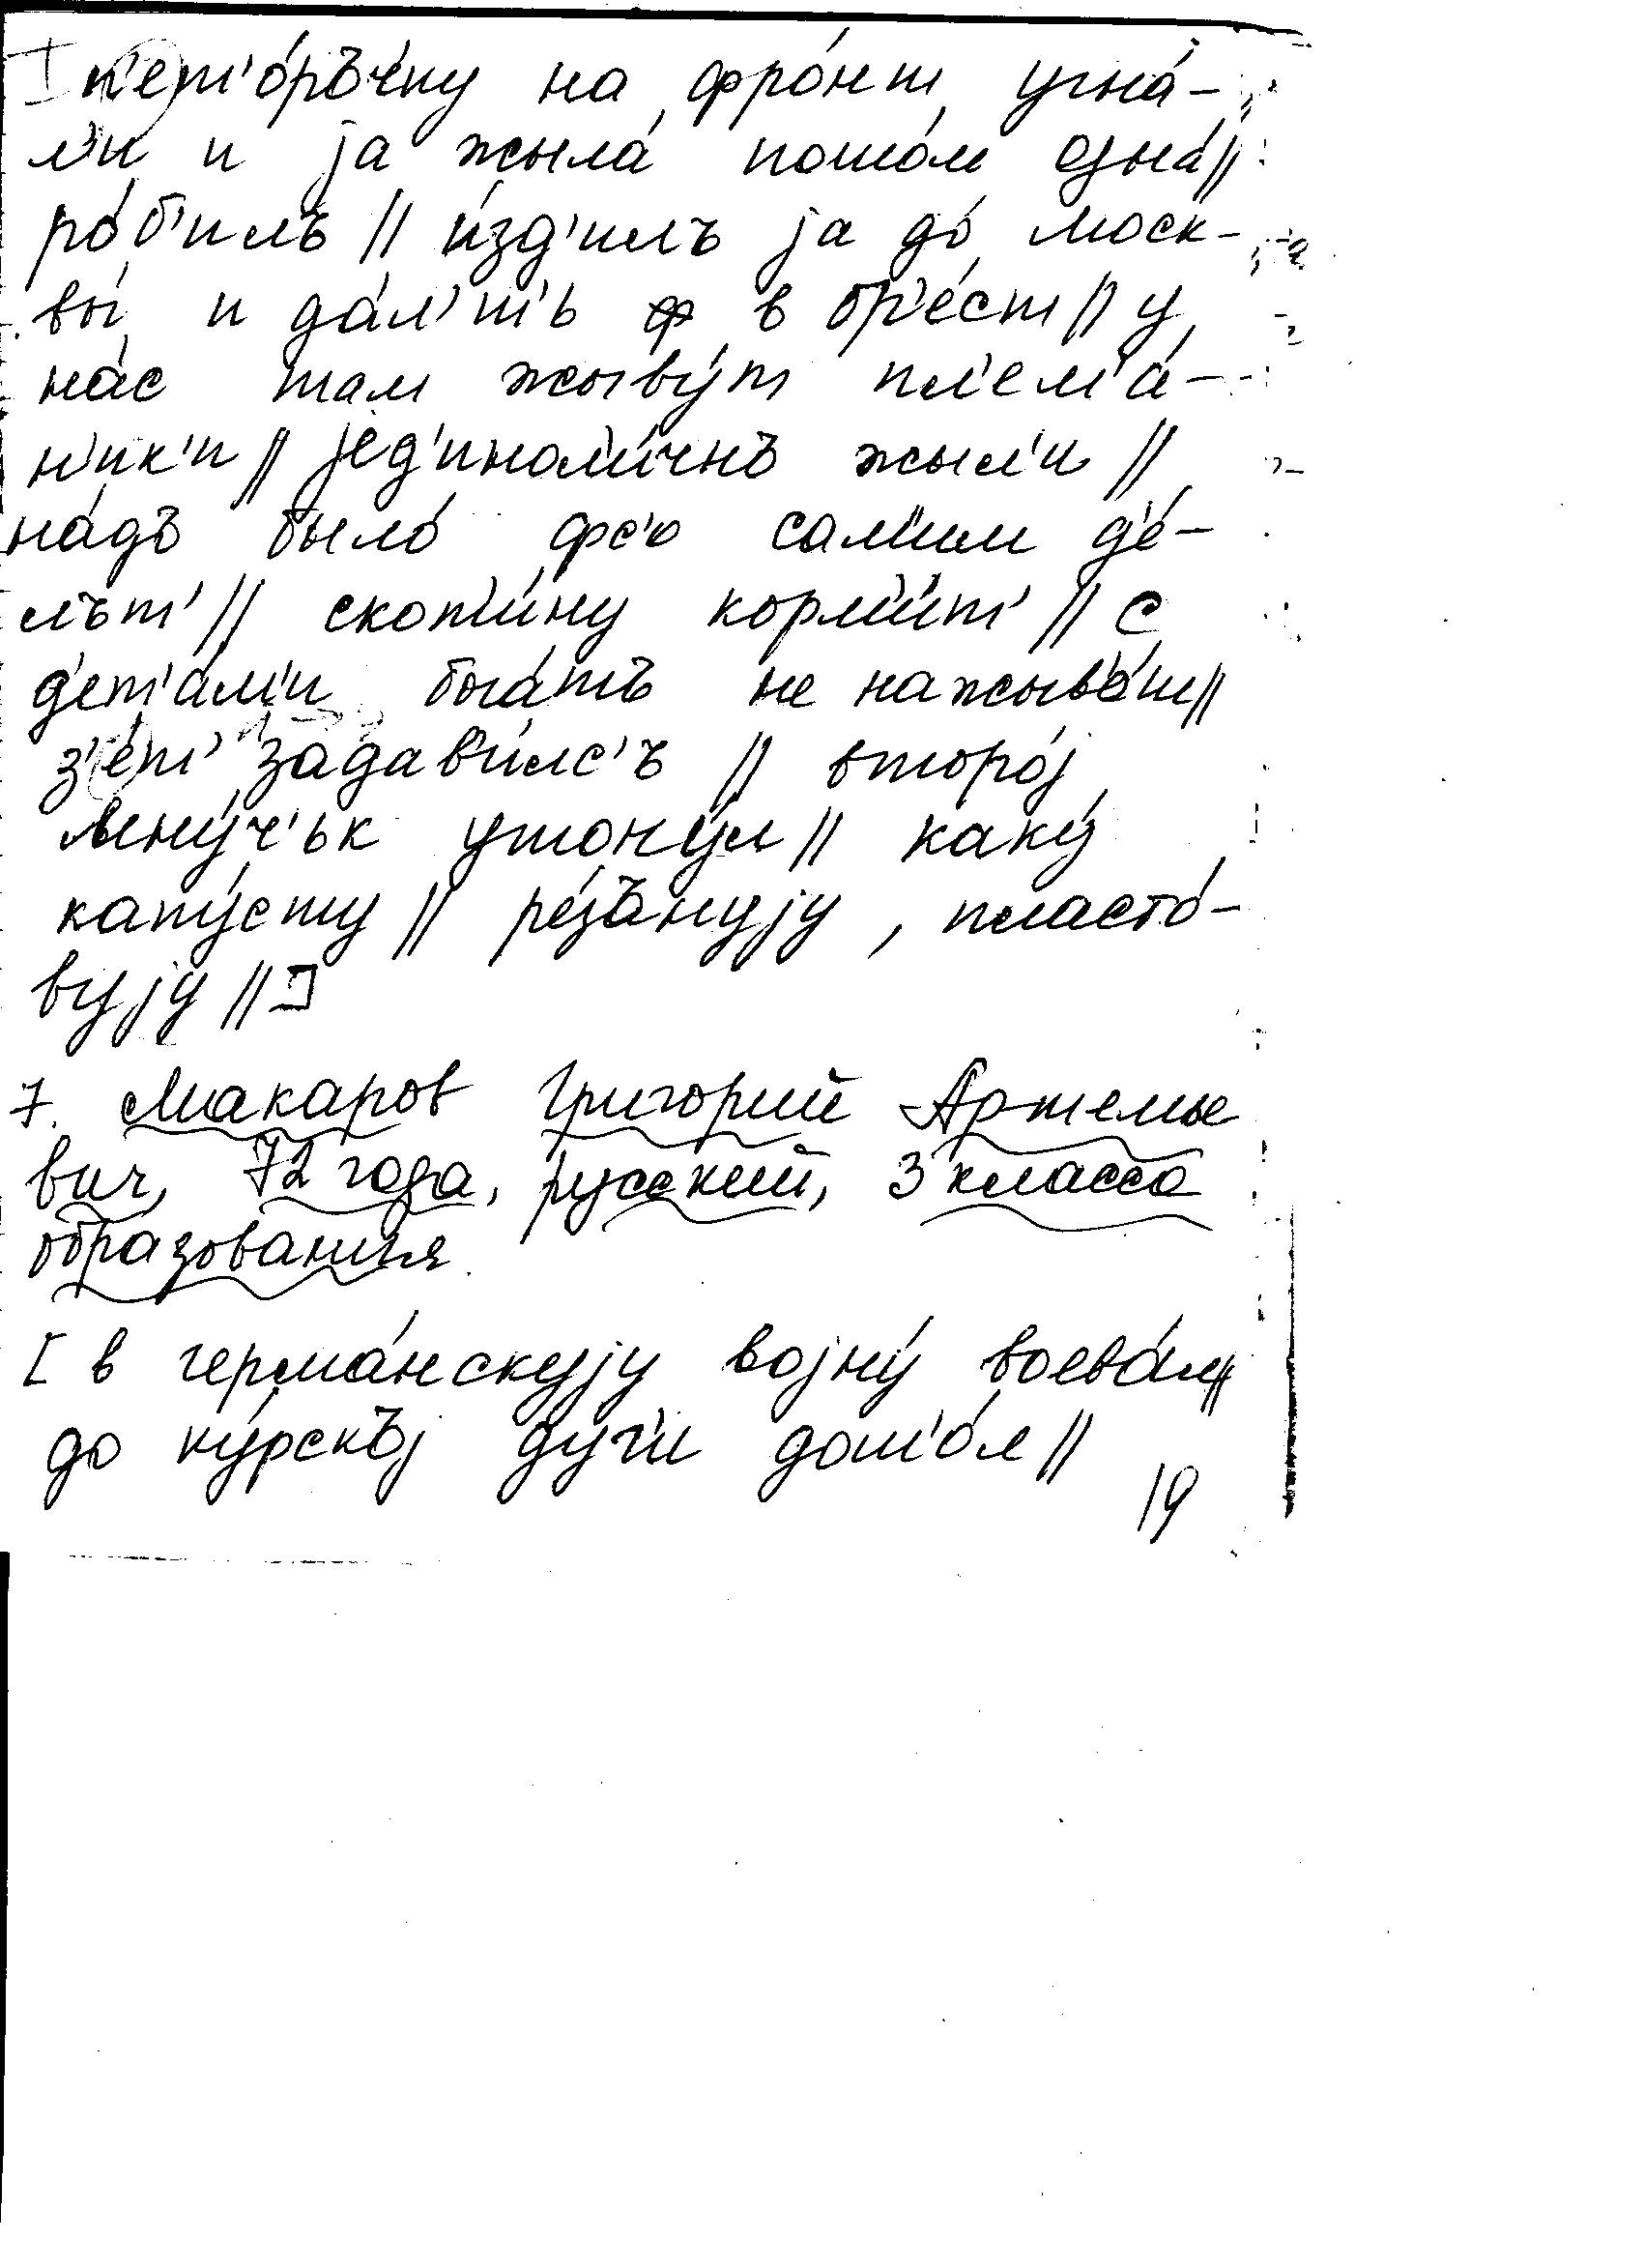 [п'ет'о́ръчку на фро́нт угна́-
л'и и jа жыла́ потом одна́//
ро́б'илъ // и́зд'илъ jа до́ моск-
вы́ и да́л'ш'ь в бр'е́ст // у
на́с там жыву́т пл'ем'а́-
н'ик'и // jед'инол'и́чнъ жыл'и //
на́дъ было́ фс'о сам'им д'е́-
лът' // скот'и́ну корм'и́т' // с
д'ет'а́м'и быга́тъ не нажыв'о́ш//
з'е́т' задав'и́лс'ъ // второ́j
внýч'ьк утону́л // каку́
капу́сту // ре́зъnуjу, пласто́-
вуjу //]
7. Макаров Григорий Артемье
вич, 72 года, русский, 3 класса
образования
[ в герма́нскуjу воjну́ воева́л//
до ку́рскъj дуг'и дош'о́л //
19